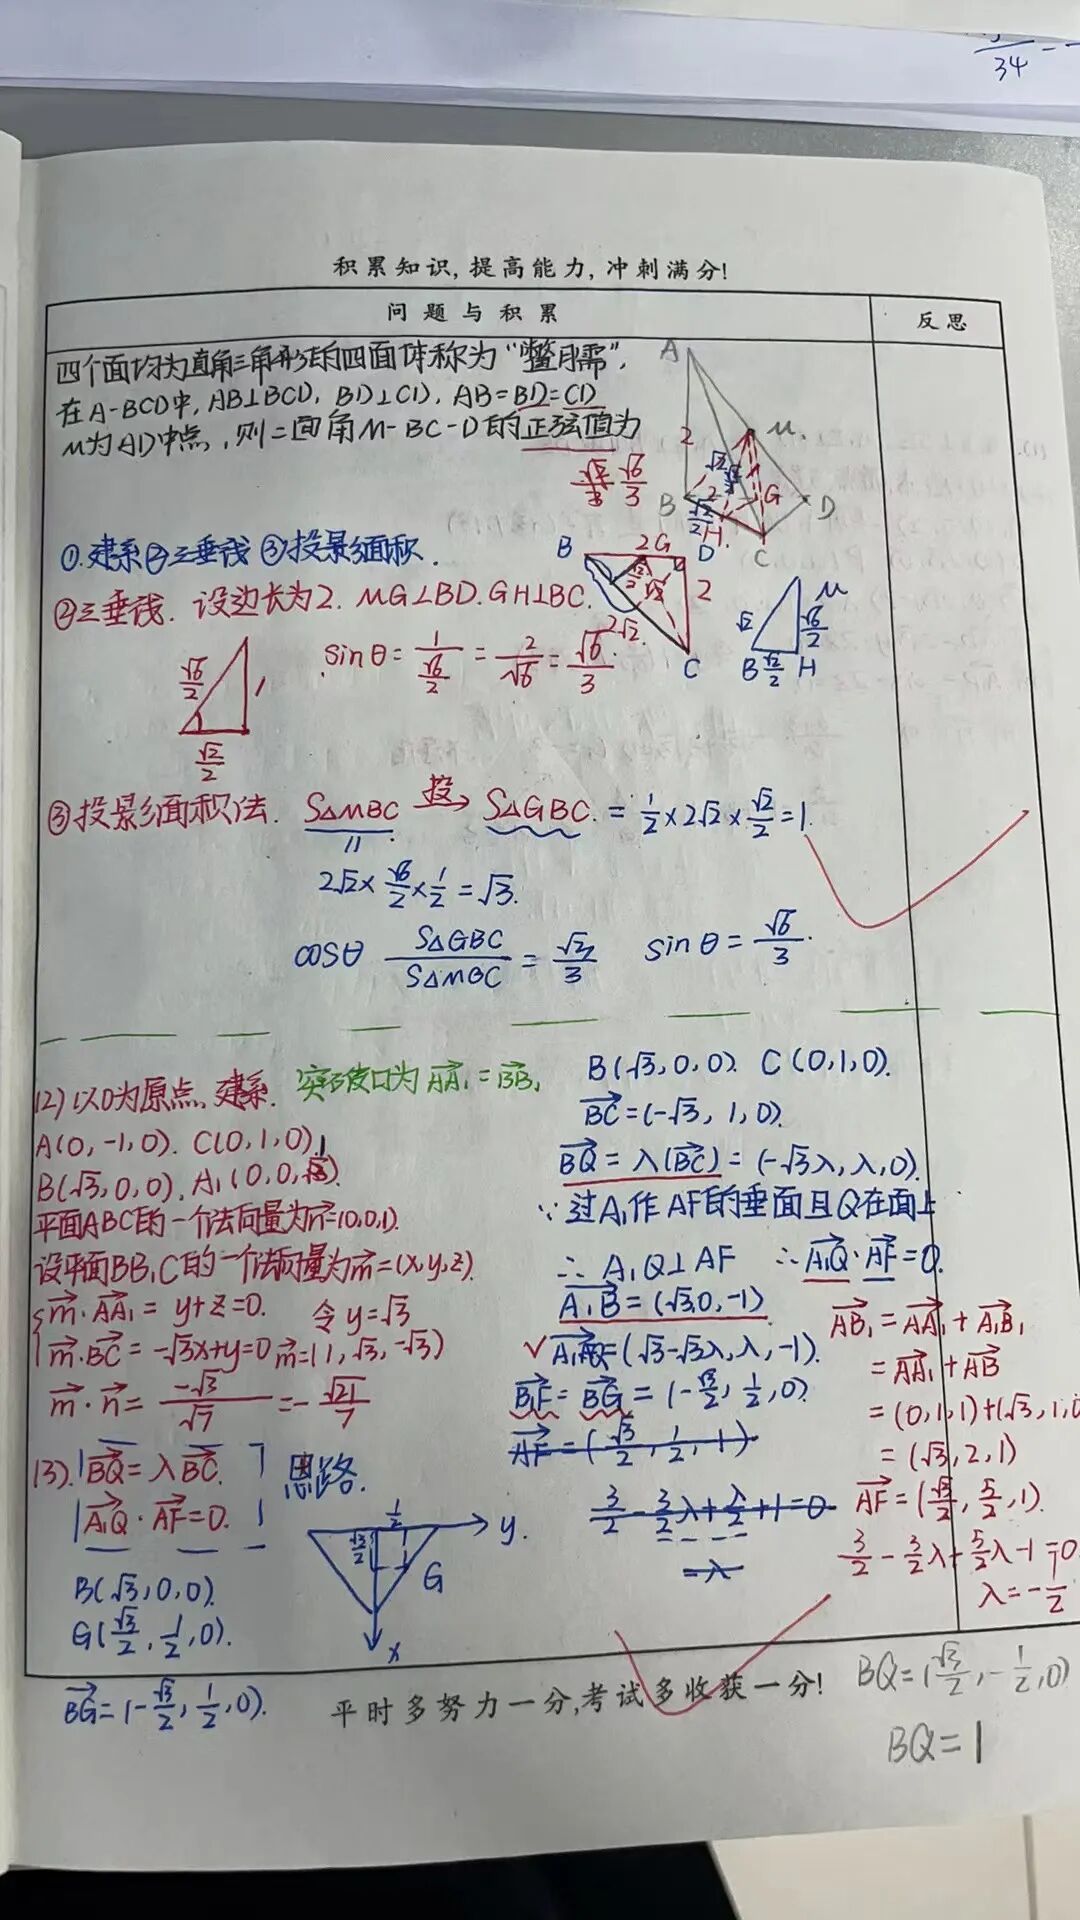 34
积累知识,提高能力,冲刺满分!
问题与积累
反思
四个面均为直角三角形的四面体称为“鳖臑”,
在A-BCD中, AB⊥BCD, BD⊥CD, AB=BD=CD
M为AD中点,则二面角M-BC-D的正弦值为
√6/3
A
M
2
√2
B
2
G
D
√2/2
H
C
①.建系②三垂线 ③投影面积.
B
2
G
D
②三垂线. 设边长为2. MG⊥BD. GH⊥BC.
√2/2
√2
2
2√2
C
√2
M
√6/2
B
√2/2
H
√6/2
1
√2/2
sinθ = 1/(√6/2) = 2/√6 = √6/3
③投影面积法. S△MBC 投→ S△GBC = 1/2×2√2×√2/2=1.
2√2×√6/2×1/2=√3.
cosθ S△GBC/S△MBC = √3/3 sinθ = √6/3.
(2)以O为原点,建系.
A(0,-1,0). C(0,1,0),
B(√3,0,0). A₁(0,0,
平面ABC的一个法向量为n=(0,0,1).
设平面BB₁C的一个法向量为m=(x,y,z).
m·AA₁=y+z=0. 令y=√3
m·BC=-√3x+y=0 m=(1,√3,-√3)
m·n=-√3/√7=-√21/7
(3). BQ=λBC.
A₁Q·AF=0.
思路.
B(√3,0,0).
G(√3/2,1/2,0).
BG=(-√3/2,1/2,0).
1/2
√3/2
y.
G
x
突破口为AA₁=BB₁
B(√3,0,0). C(0,1,0).
BC=(-√3,1,0).
BQ=λ(BC)=(-√3λ,λ,0).
∵过A₁作AF的垂面且Q在面上
∴A₁Q⊥AF ∴A₁Q·AF=0.
A₁B=(√3,0,-1)
√A₁Q=(√3-√3λ,λ,-1).
B₁F=BG=(-√3/2,1/2,0).
AF=(√3/2,1/2,1)
3/2-3/2λ+λ/2+1=0
=λ
AB₁=AA₁+A₁B₁
=AA₁+AB
=(0,1,1)+(√3,1,0
=(√3,2,1)
AF=(√3/2,5/2,1).
3/2-3/2λ+5/2λ-1=0
λ=-1/2
平时多努力一分,考试多收获一分!
BQ=(√3/2,-1/2,0)
BQ=1